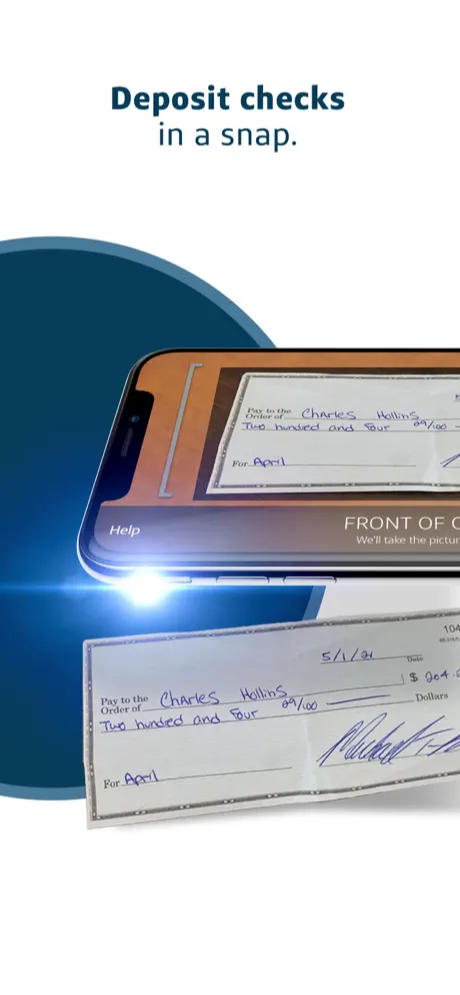 Deposit checks
in a snap.
Pay to the
Order of Charles Hollins
Two hundred and four 29/100
For April
Help
FRONT OF C
We'll take the pictur
104
5/1/21 Date
Pay to the
Order of Charles Hollins $ 204.2
Two hundred and four 29/100 Dollars
For April